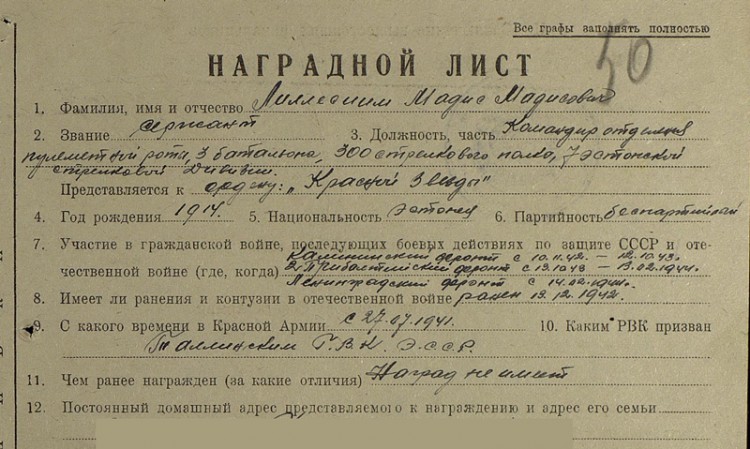 Все графы заполнять полностью
50
НАГРАДНОЙ ЛИСТ
1. Фамилия, имя и отчество Лиллесиим Мадис Мадисович
2. Звание сержант 3. Должность, часть Командир отделения
пулеметной роты, 3 баталиона, 300 стрелкового полка, 7 эстонской
стрелковой Дивизии.
Представляется к ордену: „Красной Звезды"
4. Год рождения 1914. 5. Национальность Эстонец 6. Партийность беспартийный
7. Участие в гражданской войне, последующих боевых действиях по защите СССР и оте-
Калининский фронт с 10.11.42. — 12.10.43.
чественной войне (где, когда) 2-Прибалтийский фронт с 12.10.43 — 13.02.1944.
Ленинградский фронт с 14.02.1944.
8. Имеет ли ранения и контузии в отечественной войне ранен 19.12.1942.
9. С какого времени в Красной Армии с 27.07.1941. 10. Каким РВК призван
Таллинским Г.В.К. Э.С.С.Р.
11. Чем ранее награжден (за какие отличия) Наград не имеет
12. Постоянный домашный адрес представляемого к награждению и адрес его семьи